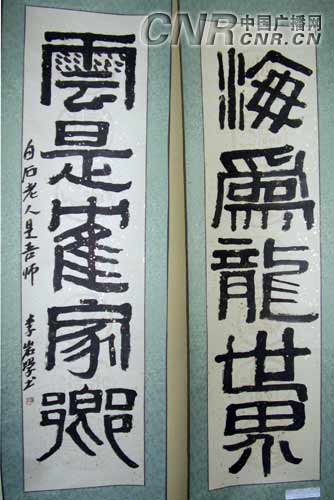 CNR 中国广播网
CNR.CN
海爲龍世界
雲是隺家鄉
白石老人是吾师
李岩